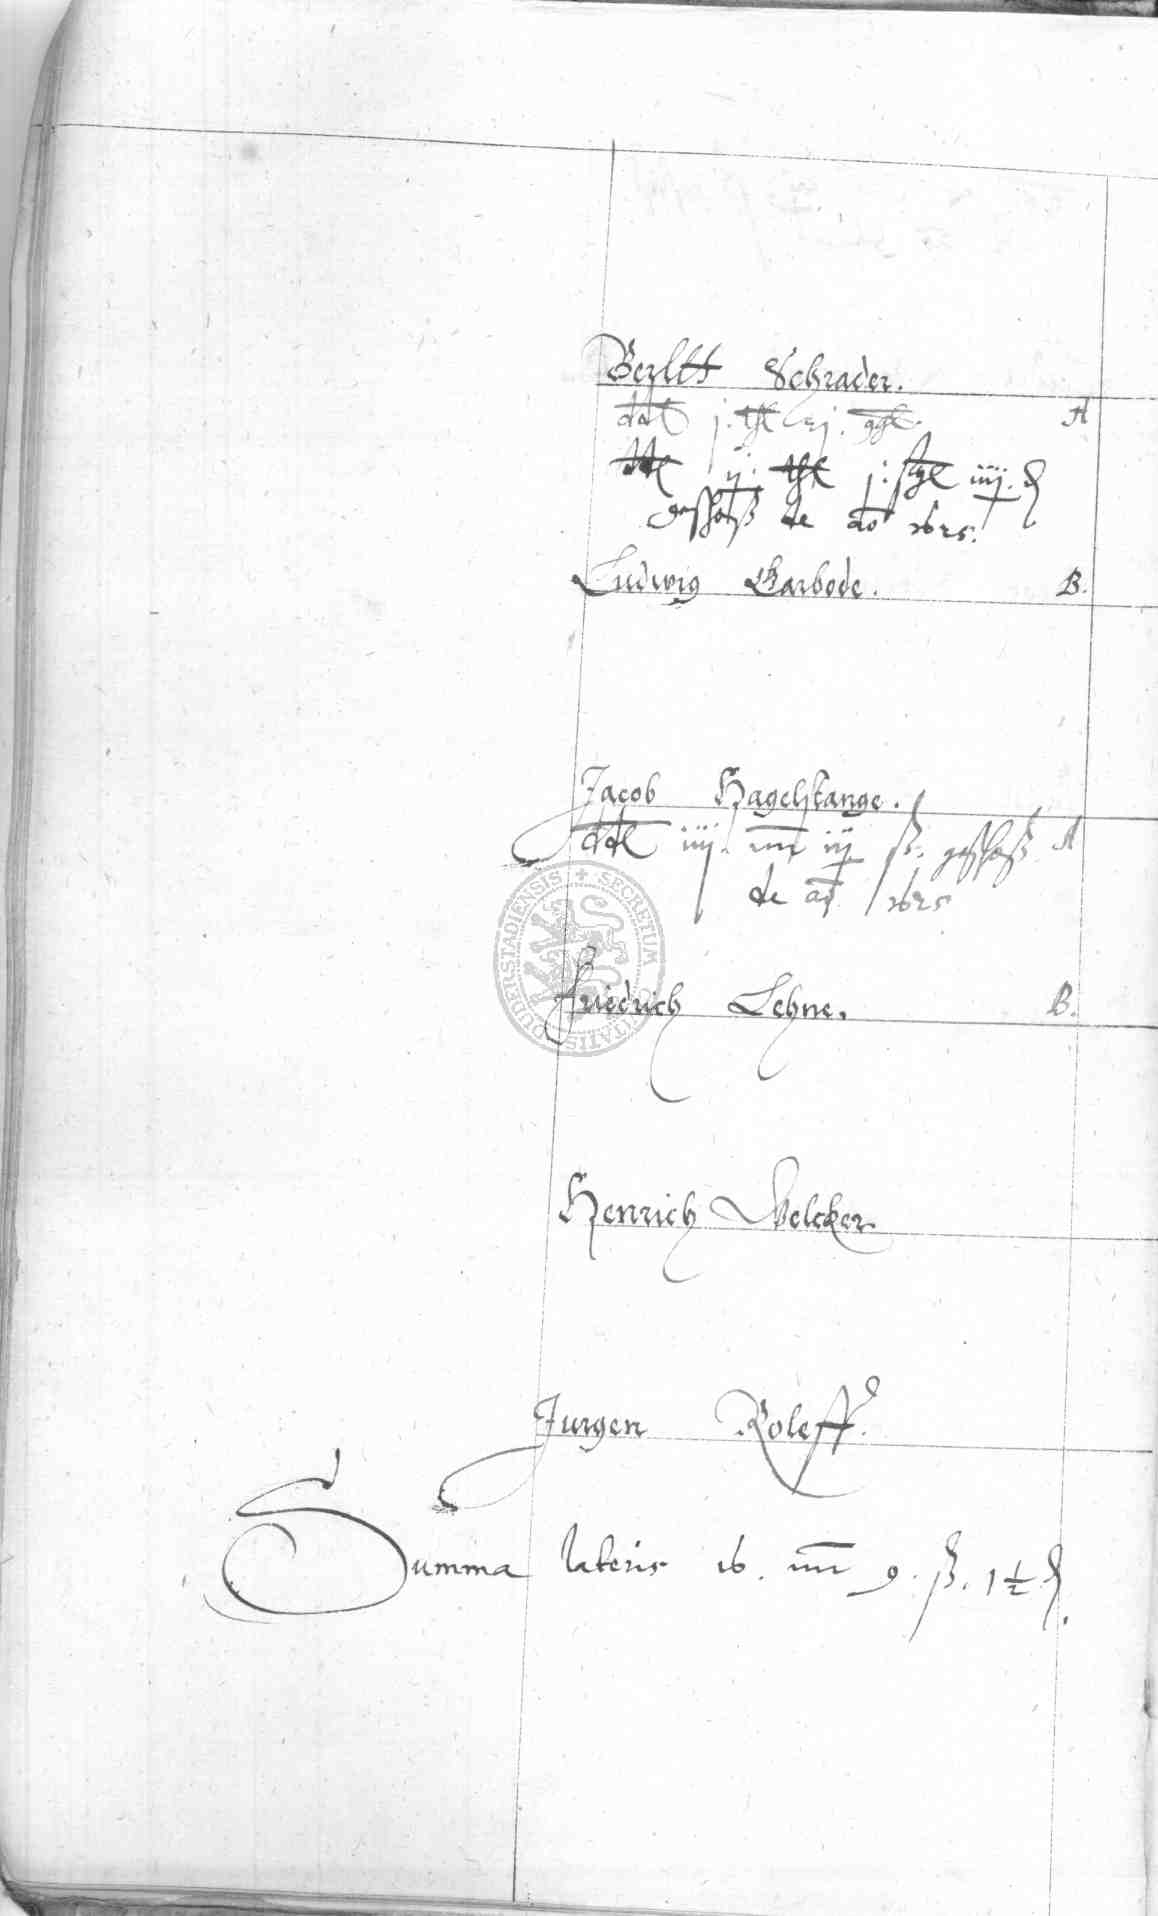 Berltt Schrader.
ddt j. thl xj. ggl. A
ddt ij. thl j. ſchl iiij. ₰
geschoß de ao 1625.
Ludwig Garbode. B.
Jacob Hagelstange.
ddt iiij. mr iij ß. geschoß A
de ao 1625
Friedrich Lehne. B.
Henrich Welcker.
Jurgen Roleff.
Summa lateris 16. mr 9. ß. 1½ ₰.
SECRETUM CIVITATIS DUDERSTADIENSIS